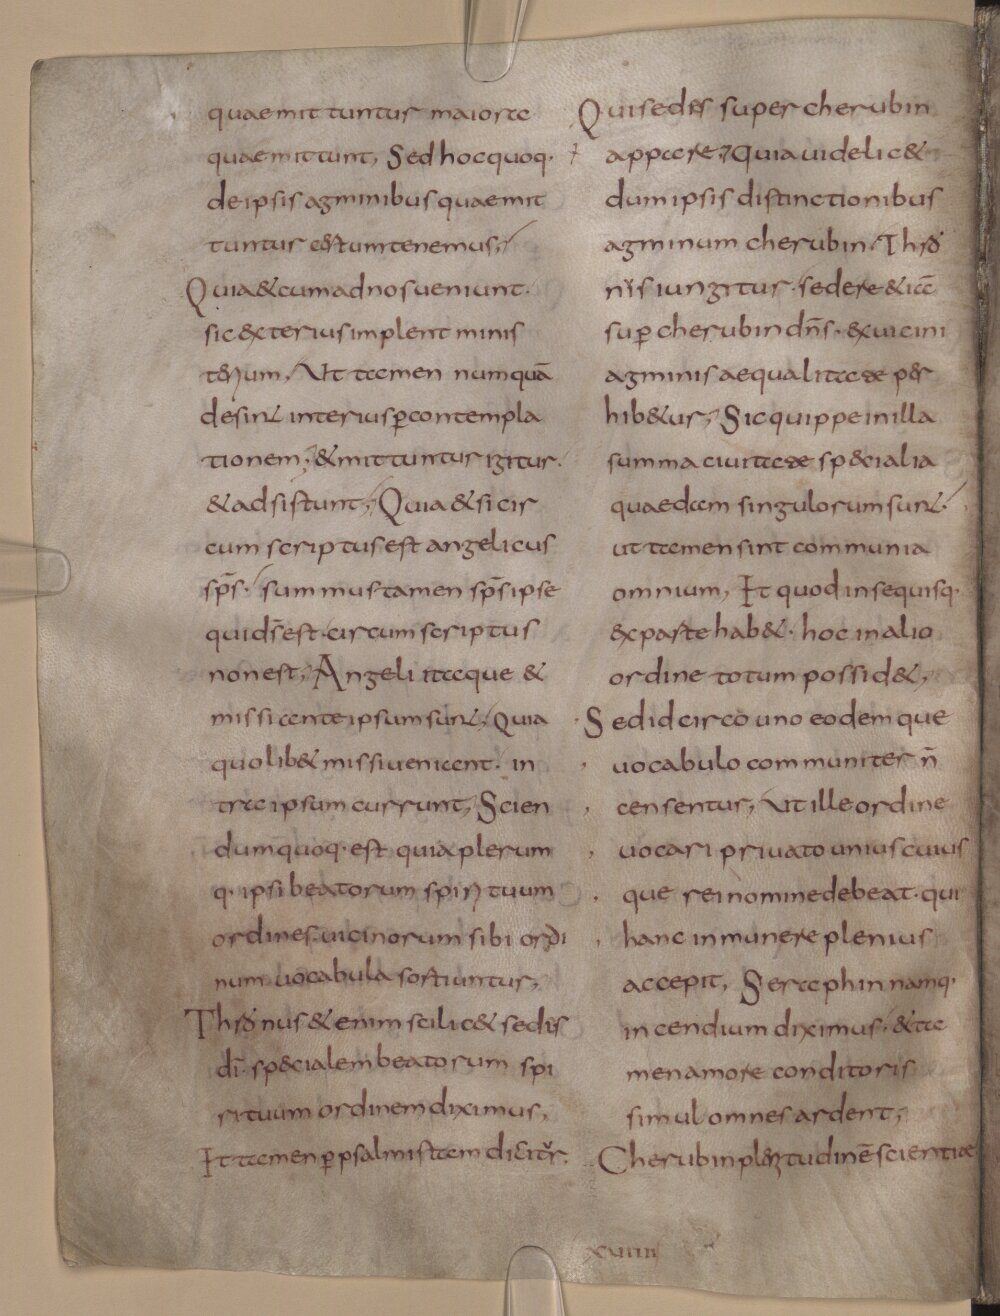 quae mittuntur maiora
quae mittunt, Sed hoc quoq·
de ipsis agminibus quae mit
tuntur certum tenemus;
Quia & cum ad nos ueniunt·
sic exterius implent minis
terium, Ut tamen numquā
desint interius ꝑ contempla
tionem; & mittuntur igitur·
& adsistunt; Quia & si cir
cum scriptus est angelicus
sp̄s· summus tamen sp̄s ipse
qui d̄s est· circum scriptus
non est, Angeli itaque &
missi ante ipsum sunt, Quia
quolib& missi ueniant· in
tra ipsum currunt, Scien
dum quoq· est quia plerum
q· ipsi beatorum spirituum
ordines· uicinorum sibi ordi
num uocabula sortiuntur;
Thronus & enim scilic& sedis
dī· specialem beatorum spi
rituum ordinem diximus,
Et tamen ꝑ psalmistam dicitur·
Qui sedes super cherubin
appare, Quia uidelic&
dum ipsis distinctionibus
agminum cherubin· Thro
nis iungitur· sedere &iā
suꝑ cherubin dn̄s· ex uicini
agminis aequalitate per
hib&ur, Sic quippe in illa
summa ciuitate specialia
quaedam singulorum sunt·
ut tamen sint communia
omnium, Et quod in se quisq·
ex parte hab&· hoc in alio
ordine totum possid&,
Sed idcirco uno eodemque
uocabulo communiter n̄
censentur, Ut ille ordine
uocari priuato unius cuius
que rei nomine debeat· qui
hanc in munere plenius
accepit, Seraphin namq·
incendium diximus· & ta
men amore conditoris
simul omnes ardent,
Cherubin plenitudinē scientiae
xuiiii